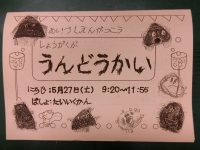 あいづしえんがっこう
しょうがくぶ
うんどうかい
にちじ:5月27日(土) 9:20～11:55
ばしょ:たいいくかん